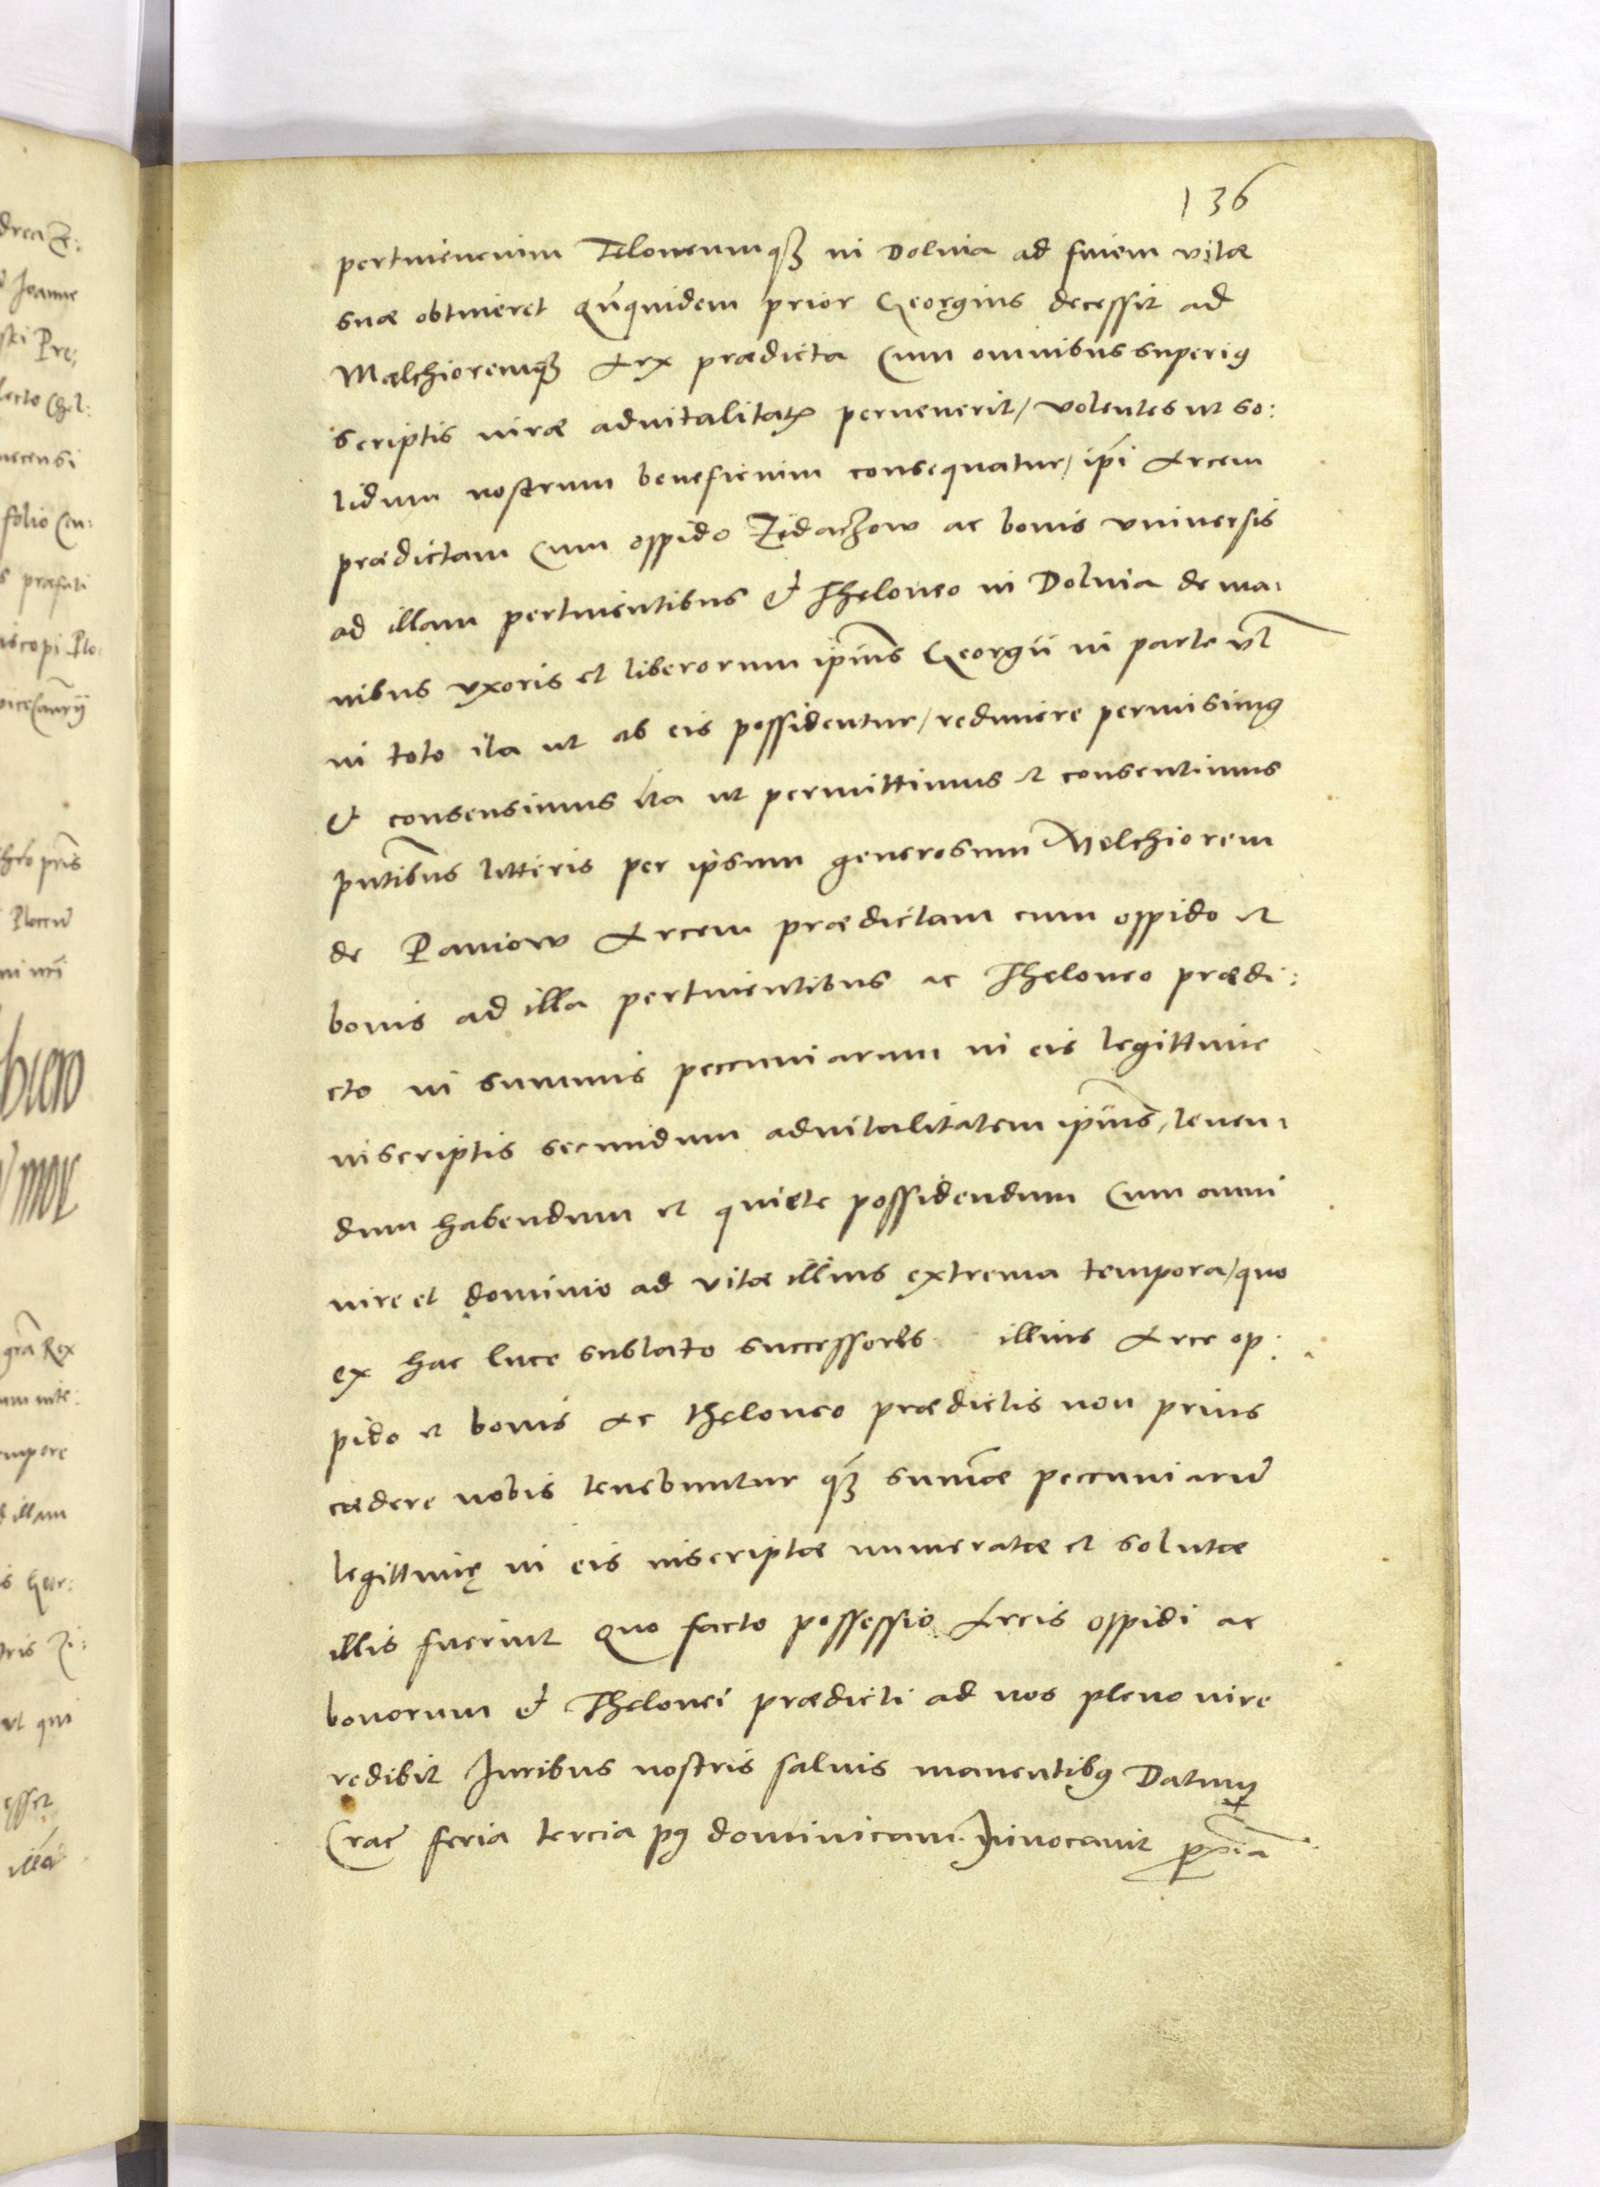 136
pertinencium Teloneumqꝫ in Dolina ad finem vitæ
suæ obtineret qūquidem prior Georgius decessit ad
Mælchioremqꝫ Arx prædicta Cum omnibus superiꝰ
scriptis iure aduitalitatꝭ peruenerit / volentes ut so:
lidum nostrum beneficium consequatur / ip̄i Arcem
prædictam Cum oppido Zidaczow ac bonis vniuersis
ad illam pertinentibus & Theloneo in Dolina de ma:
nibus vxoris et liberorum ip̄ius Georgii in parte vl̄
in toto ita ut ab eis possidentur / redimere permisimꝰ
& consensimus ita ut permittimus et consentimus
pn̄tibus litteris per ipsum generosum Melchiorem
de Paniow Arcem prædictam cum oppido et
bonis ad illa pertinentibus ac Theloneo prædi:
cto in summis peccuniarum in eis legittime
inscriptis secundum aduitalitatem ip̄ius, tenen:
dum habendum et quiete possidendum Cum omni
iure et dominio ad vitæ illius extrema tempora / quo
ex hac luce sublato successores illius Arce op:
pido et bonis Ac theloneo prædictis non prius
cædere nobis tenebuntur qꝫ summæ peccuniarū
legittimę in eis inscriptæ numeratæ et solutæ
illis fuerint Quo facto possessio Arcis oppidi ac
bonorum & Thelonei prædicti ad nos pleno iure
redibit Juribus nostris saluis manentibꝰ Datum
Crac̄ feria tercia pꝰ dominicam Jnuocauit
drea Ze:
Joanne
ski Pre:
lecto Chel:
necensi
folio Cra:
s præfati
iscopi Plo:
vicecan̄rij
gra Rex
empore
d illam
s Geor:
tris Zi:
ut qui
esset
illa